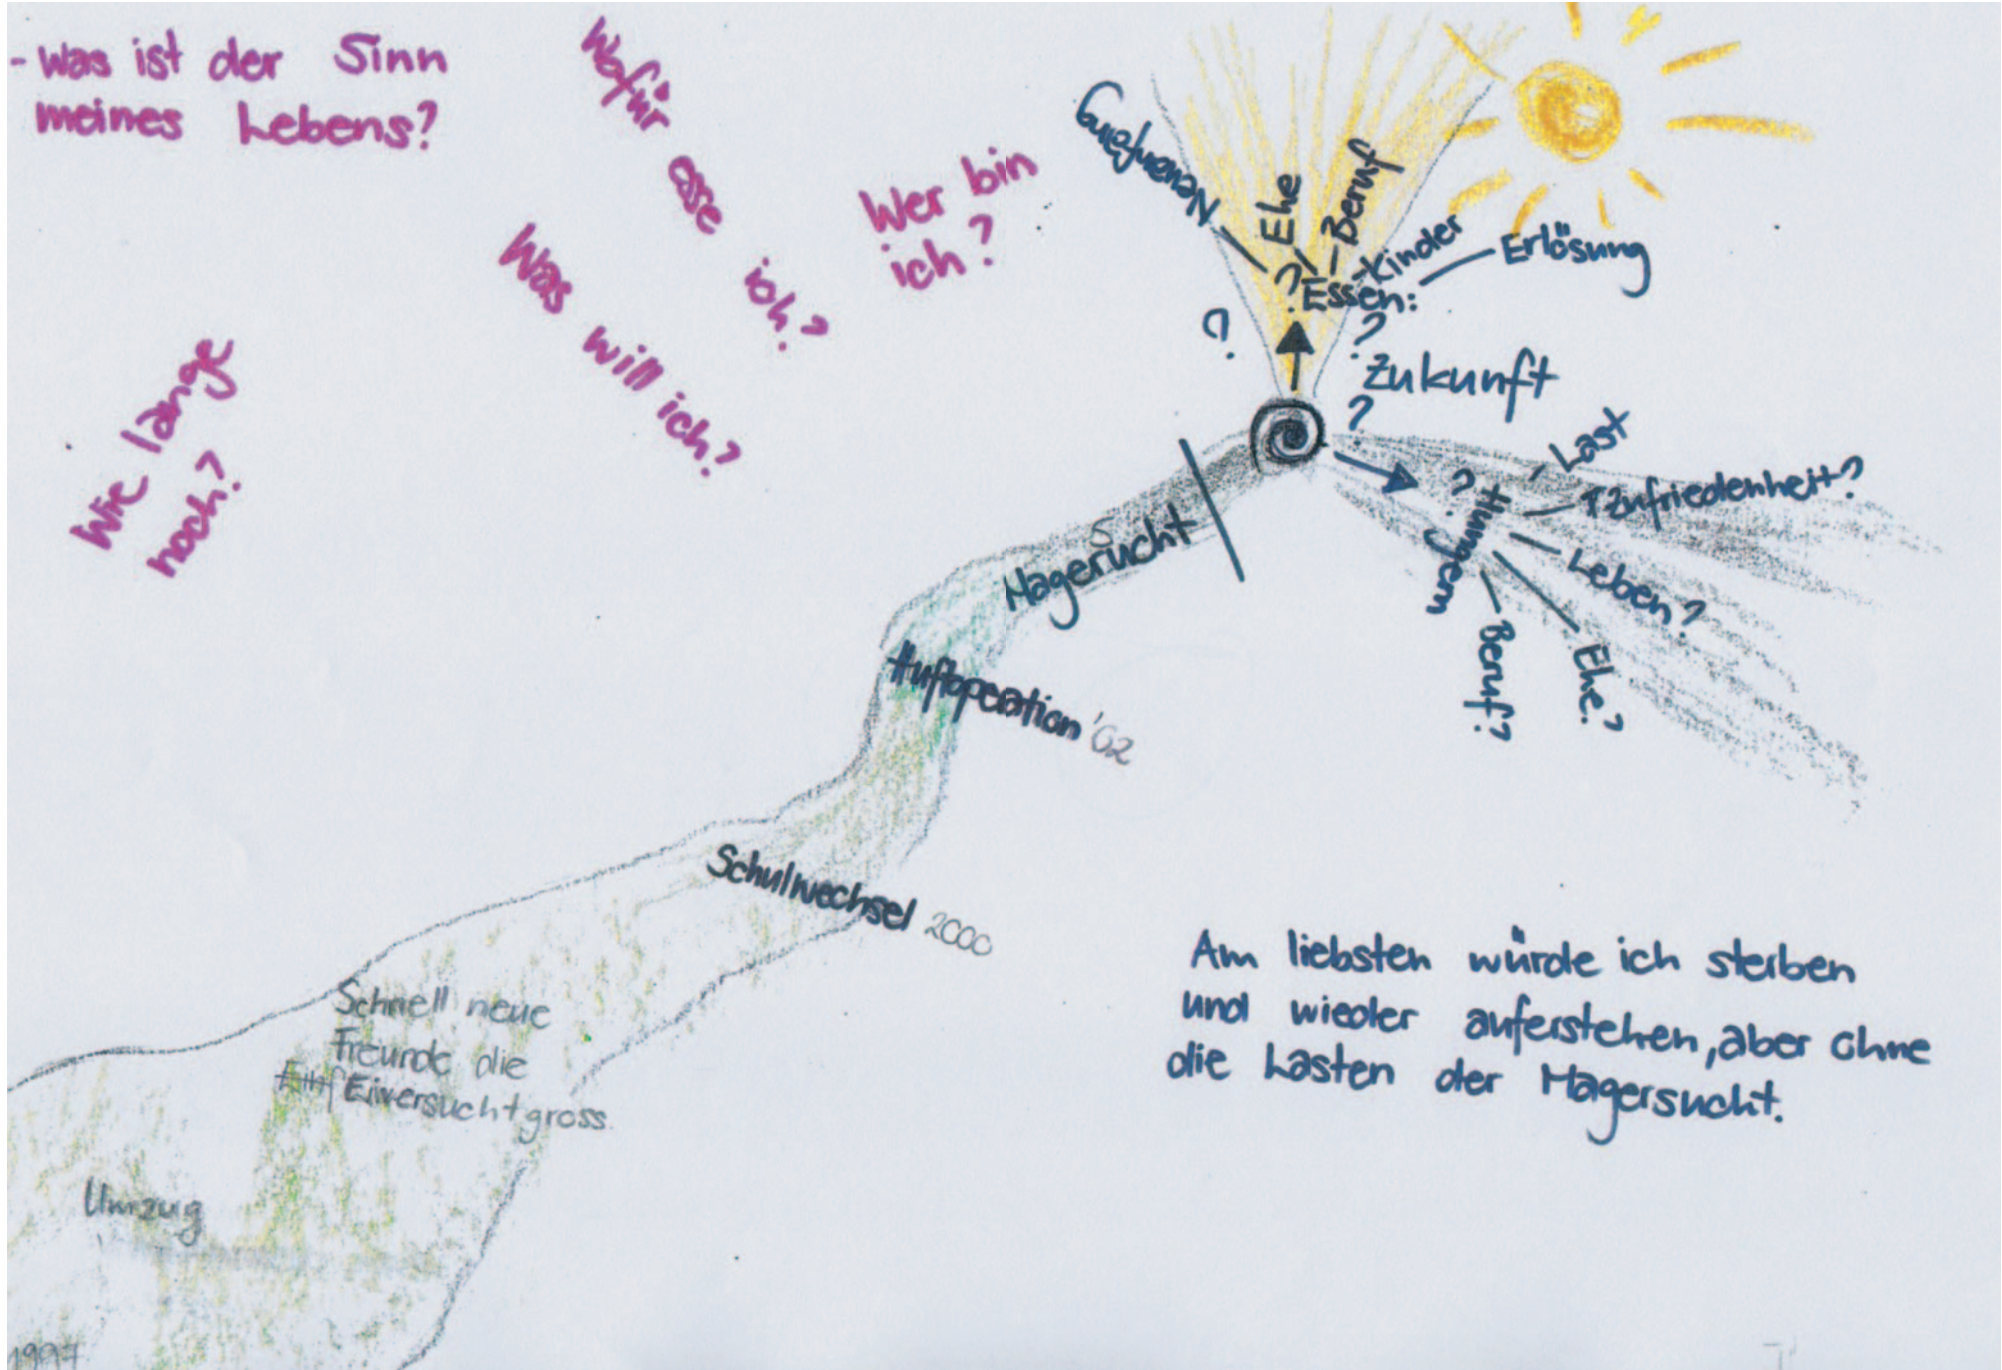 - Was ist der Sinn
meines Lebens?
Wofür esse ich?
Wer bin
ich?
Was will ich?
Wie lange
noch?
Neuanfang
Ehe
Beruf
Kinder
Erlösung
?
Essen:
?
?
Zukunft
?
Last
Zufriedenheit?
?
Hungern
Leben?
Ehe?
Beruf?
Magerucht
s
Hüftoperation '02
Schulwechsel 2000
Schnell neue
Freunde die
Eiversucht gross.
Umzug
1997
Am liebsten würde ich sterben
und wieder auferstehen, aber ohne
die Lasten der Magersucht.